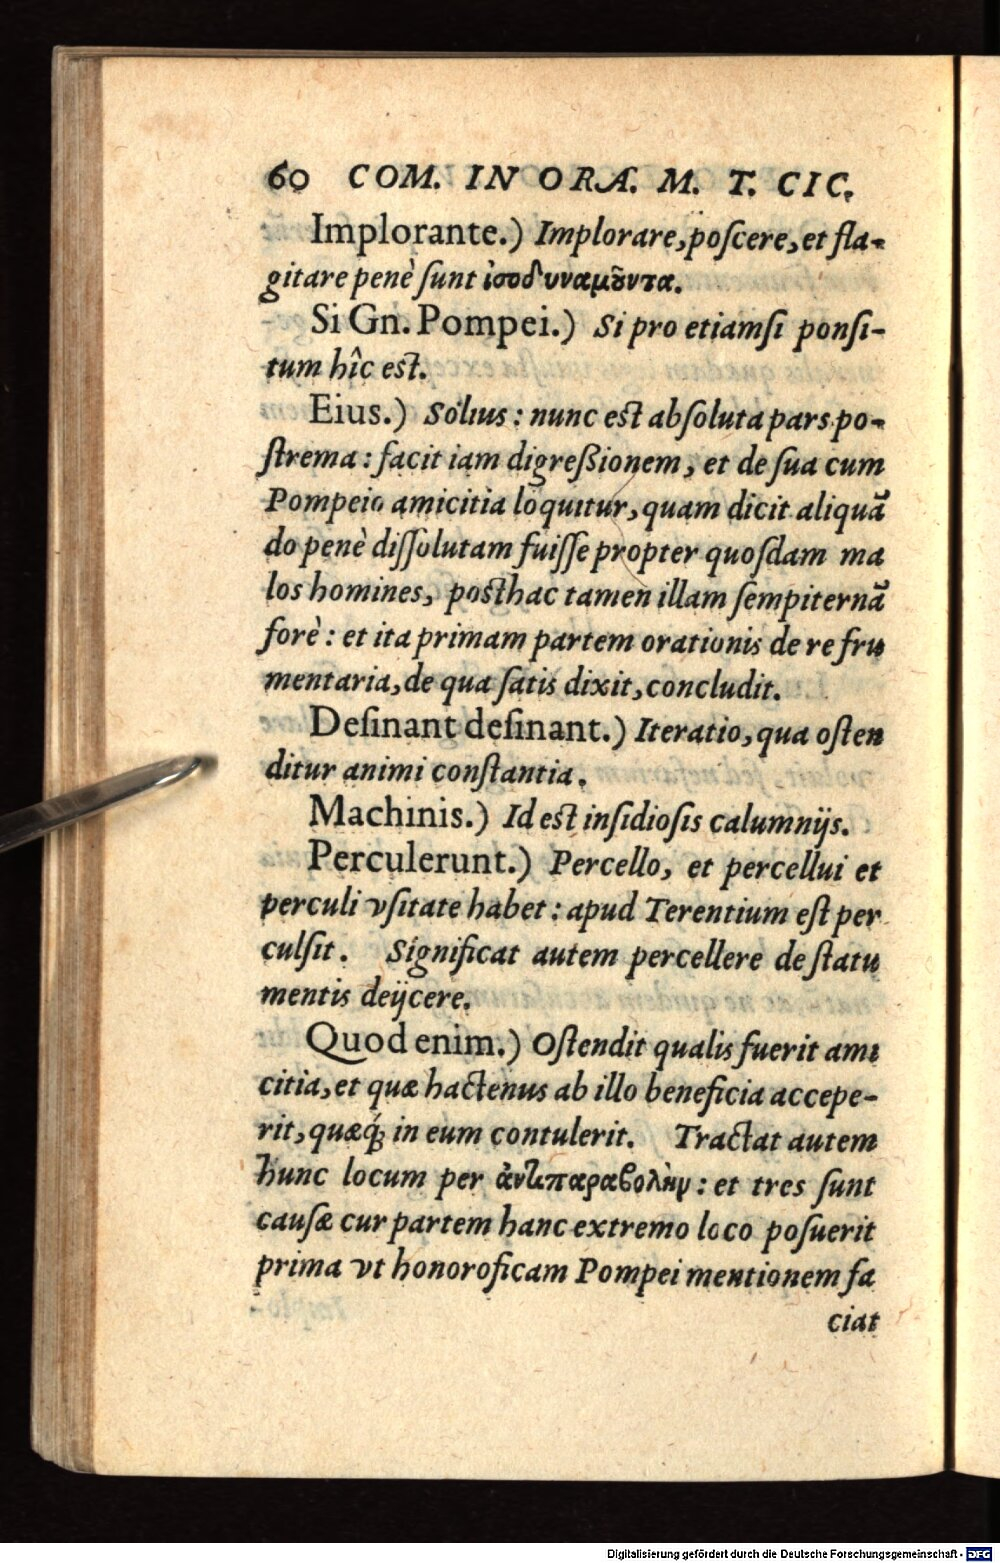 60 COM. IN ORA. M. T. CIC.
Implorante.) Implorare, poſcere, et fla-
gitare penè ſunt ἰσοδυναμοῦντα.
Si Gn. Pompei.) Si pro etiamſi ponſi-
tum hîc est.
Eius.) Solius: nunc est abſoluta pars po-
ſtrema: facit iam digreßionem, et de ſua cum
Pompeio amicitia loquitur, quam dicit aliquā
do penè diſſolutam fuiſſe propter quoſdam ma
los homines, posthac tamen illam ſempiternā
forè: et ita primam partem orationis de re fru
mentaria, de qua ſatis dixit, concludit.
Deſinant deſinant.) Iteratio, qua oſten
ditur animi conſtantia.
Machinis.) Id est inſidioſis calumnijs.
Perculerunt.) Percello, et percellui et
perculi vſitate habet: apud Terentium eſt per
culſit. Significat autem percellere de ſtatu
mentis deijcere.
Quod enim.) Oſtendit qualis fuerit ami
citia, et quæ hactenus ab illo beneficia accepe-
rit, quæq́; in eum contulerit. Tractat autem
hunc locum per ἀντιπαραβολὴν: et tres ſunt
cauſæ cur partem hanc extremo loco poſuerit
prima vt honoroficam Pompei mentionem fa
ciat
Digitalisierung gefördert durch die Deutsche Forschungsgemeinschaft - DFG